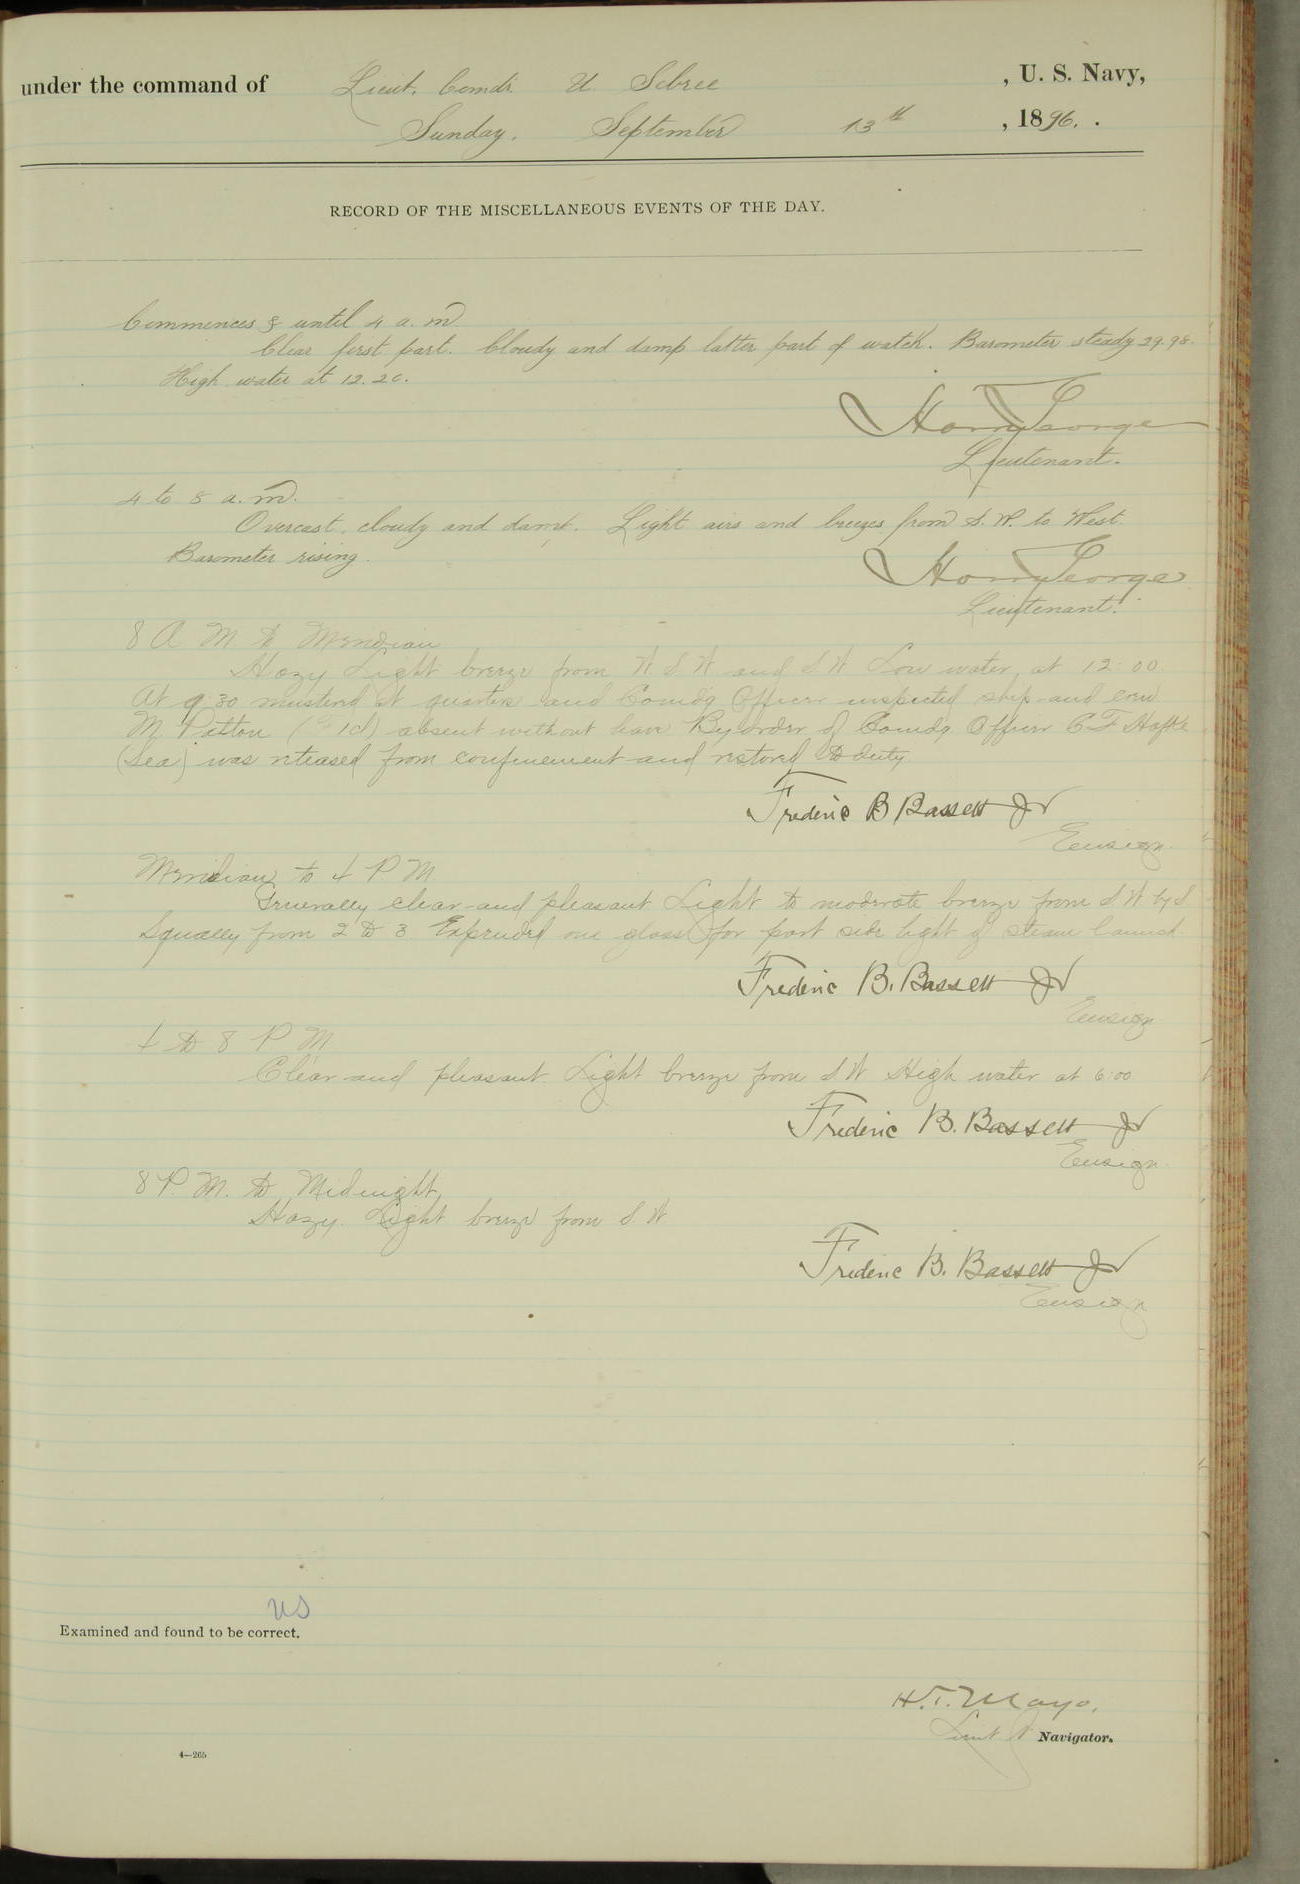 under the command of Lieut. Comdr. U. Sebree , U. S. Navy,
Sunday. September 13th , 1896. .
RECORD OF THE MISCELLANEOUS EVENTS OF THE DAY.
Commences & until 4 a. m.
Clear first part. Cloudy and damp latter part of watch. Barometer steady 29.98.
High water at 12.20.
Harry George
Lieutenant.
4 to 8 a. m.
Overcast, cloudy and damp. Light airs and breezes from S. W. to West.
Barometer rising.
Harry George
Lieutenant.
8 A M to Meridian
Hazy Light breeze from W S W and S W Low water at 12:00
At 9:30 mustered at quarters and Comdg Officer inspected ship and crew
M Patton ( 1cl) absent without leave By order of Comdg Officer C F
(Sea) was released from confinement and restored to duty
Frederic B Bassett Jr
Ensign
Meridian to 4 P M
Generally clear and pleasant Light to moderate breeze from S W by S
Squally from 2 to 3 Expended one glass for port side light of steam launch
Frederic B. Bassett Jr
Ensign
4 to 8 P M
Clear and pleasant Light breeze from S W High water at 6:00
Frederic B. Bassett Jr
Ensign
8 P. M. to Midnight
Hazy Light breeze from S W
Frederic B. Bassett Jr
Ensign
US
Examined and found to be correct.
H. T. Mayo,
Lieut Navigator.
4—265